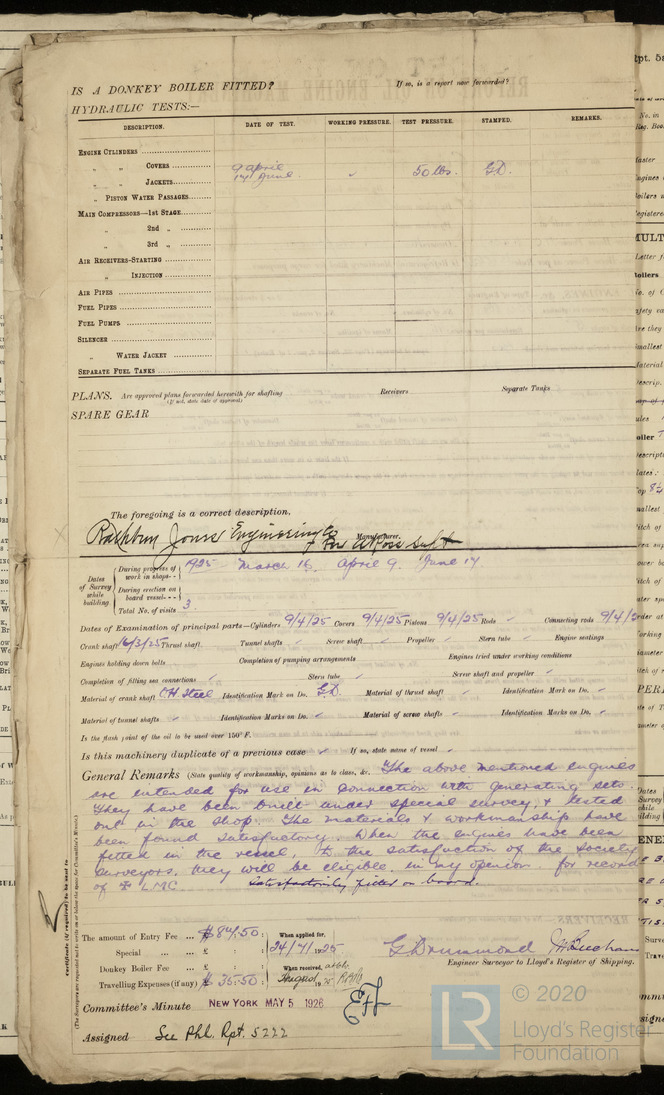 IS A DONKEY BOILER FITTED? If so, is a report now forwarded?
HYDRAULIC TESTS:—
DESCRIPTION. DATE OF TEST. WORKING PRESSURE. TEST PRESSURE. STAMPED. REMARKS.
ENGINE CYLINDERS
" " COVERS 9 April
" " JACKETS 14 June 50 lbs. G.D.
" PISTON WATER PASSAGES
MAIN COMPRESSORS—1st STAGE
" 2nd "
" 3rd "
AIR RECEIVERS-STARTING
" INJECTION
AIR PIPES
FUEL PIPES
FUEL PUMPS
SILENCER
" WATER JACKET
SEPARATE FUEL TANKS
PLANS. Are approved plans forwarded herewith for shafting Receivers Separate Tanks
(If not, state date of approval)
SPARE GEAR
The foregoing is a correct description.
Rathbun Jones Engineering Co Manufacturer.
Dates of Survey while building
During progress of work in shops-- 1925 March 16. April 9. June 14
During erection on board vessel---
Total No. of visits 3.
Dates of Examination of principal parts—Cylinders 9/4/25 Covers 9/4/25 Pistons 9/4/25 Rods ✓ Connecting rods 9/4/2
Crank shaft 16/3/25 Thrust shaft Tunnel shafts ✓ Screw shaft ✓ Propeller ✓ Stern tube ✓ Engine seatings
Engines holding down bolts Completion of pumping arrangements Engines tried under working conditions
Completion of fitting sea connections ✓ Stern tube ✓ Screw shaft and propeller ✓
Material of crank shaft O H Steel Identification Mark on Do. G.D. Material of thrust shaft ✓ Identification Mark on Do. ✓
Material of tunnel shafts ✓ Identification Marks on Do. ✓ Material of screw shafts ✓ Identification Marks on Do. ✓
Is the flash point of the oil to be used over 150° F.
Is this machinery duplicate of a previous case ✓ If so, state name of vessel ✓
General Remarks (State quality of workmanship, opinions as to class, &c. The above mentioned engines
are intended for use in connection with generating sets.
They have been built under special survey, & tested
out in the shop. The materials & workmanship have
been found satisfactory. When the engines have been
fitted in the vessel, to the satisfaction of the Society
surveyors, they will be eligible, in my opinion for record
of ✠ LMC satisfactorily fitted on board.
Certificate (if required) to be sent to
(The Surveyors are requested not to write on or below the space for Committee's Minute.)
The amount of Entry Fee ... $ 84.50 : When applied for,
Special ... ... £ : : 24/7/1925
Donkey Boiler Fee ... £ : : When received,
Travelling Expenses (if any) $ 35.50 : August 1925
G Drummond
Engineer Surveyor to Lloyd's Register of Shipping.
Committee's Minute NEW YORK MAY 5 1926
Assigned See Phl. Rpt. 5222
© 2020
LR Lloyd's Register
Foundation